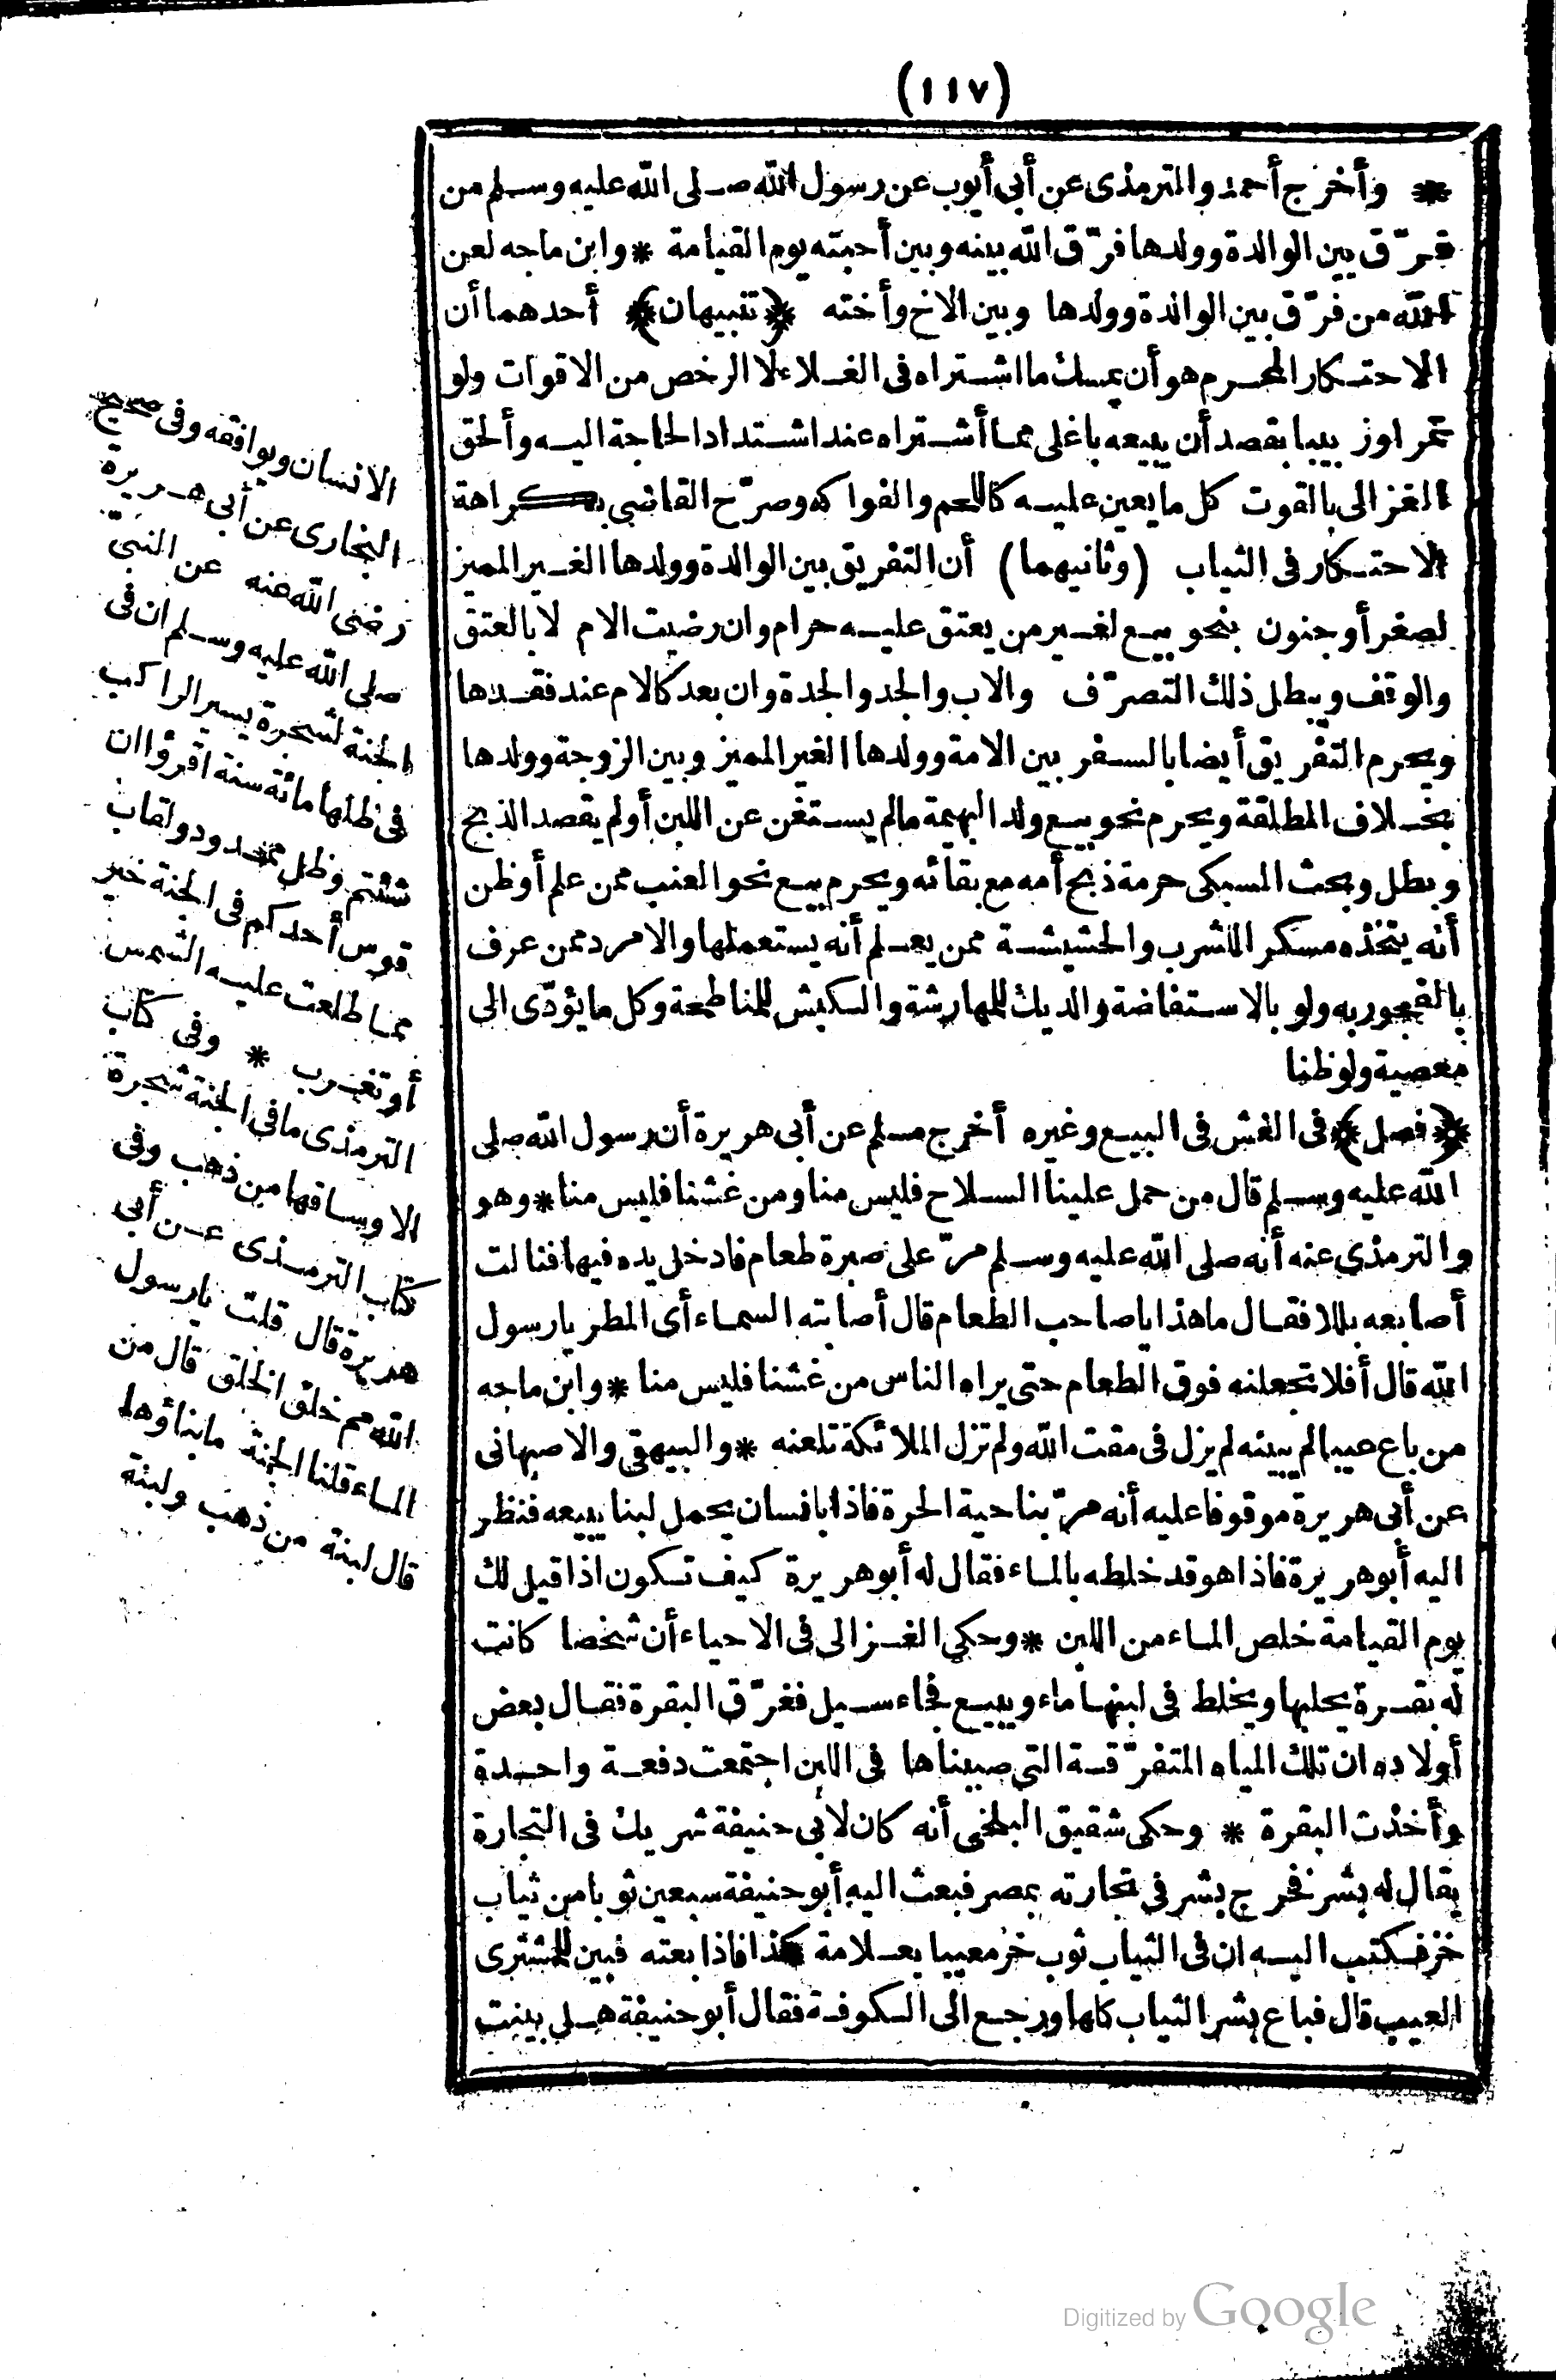 (١١٧)
* وأخرج أحمد والترمذى عن أبى أيوب عن رسول الله صلى الله عليه وسلم من
فرّق بين الوالدة وولدها فرّق الله بينه وبين أحبته يوم القيامة * وابن ماجه لعن
الله من فرّق بين الوالدة وولدها وبين الاخ وأخته ﴿تنبيهان﴾ أحدهما أن
الاحتكار المحرم هو أن يمسك ما اشتراه فى الغلاء لا الرخص من الاقوات ولو
تمرا وزبيبا بقصد أن يبيعه باغلى مما أشتراه عند اشتداد الحاجة اليه وألحق
الغزالى بالقوت كل ما يعين عليه كاللحم والفواكه وصرّح القاضى بكراهة
الاحتكار فى الثياب (وثانيهما) أن التفريق بين الوالدة وولدها الغير المميز
لصغر أو جنون بنحو بيع لغير من يعتق عليه حرام وان رضيت الام لا بالعتق
والوقف ويبطل ذلك التصرّف والاب والجد والجدة وان بعد كالام عند فقدها
ويحرم التفريق أيضا بالسفر بين الامة وولدها الغير المميز وبين الزوجة وولدها
بخلاف المطلقة ويحرم نحو بيع ولد البهيمة مالم يستغن عن اللبن أو لم يقصد الذبح
وبطل وبحث السبكى حرمة ذبح أمه مع بقائه ويحرم بيع نحو العنب ممن علم أو ظن
أنه يتخذه مسكرا للشرب والحشيشة ممن يعلم أنه يستعملها والامرد ممن عرف
بالفجور به ولو بالاستفاضة والديك للمهارشة والكبش للمناطحة وكل ما يؤدّى الى
معصية ولو ظنا
﴿فصل﴾ فى الغش فى البيع وغيره أخرج مسلم عن أبى هريرة أن رسول الله صلى
الله عليه وسلم قال من حمل علينا السلاح فليس منا ومن غشنا فليس منا * وهو
والترمذى عنه أنه صلى الله عليه وسلم مرّ على صبرة طعام فادخل يده فيها فنالت
أصابعه بللا فقال ما هذا يا صاحب الطعام قال أصابته السماء أى المطر يا رسول
الله قال أفلا تجعلنه فوق الطعام حتى يراه الناس من غشنا فليس منا * وابن ماجه
من باع عيبا لم يبينه لم يزل فى مقت الله ولم تزل الملائكة تلعنه * والبيهقى والاصبهانى
عن أبى هريرة موقوفا عليه أنه مرّ بناحية الحرة فاذا بانسان يحمل لبنا يبيعه فنظر
اليه أبو هريرة فاذا هو قد خلطه بالماء فقال له أبو هريرة كيف تكون اذا قيل لك
يوم القيامة خلص الماء من اللبن * وحكى الغزالى فى الاحياء أن شخصا كانت
له بقرة يحلبها ويخلط فى لبنها ماء ويبيع فجاء سيل فغرّق البقرة فقال بعض
أولاده ان تلك المياه المتفرّقة التى صببناها فى اللبن اجتمعت دفعة واحدة
وأخذت البقرة * وحكى شقيق البلخى أنه كان لأبى حنيفة شريك فى التجارة
يقال له بشر فخرج بشر فى تجارته بمصر فبعث اليه أبو حنيفة سبعين ثوبا من ثياب
خز فكتب اليه ان فى الثياب ثوب خز معيبا بعلامة كذا فاذا بعته فبين للمشترى
العيب قال فباع بشر الثياب كلها ورجع الى الكوفة فقال أبو حنيفة هل بينت
الانسان ويوافقه وفى صحيح
البخارى عن أبى هريرة
رضى الله عنه عن النبى
صلى الله عليه وسلم ان فى
الجنة لشجرة يسير الراكب
فى ظلها مائة سنة اقرؤا ان
شئتم وظل ممدود ولقاب
قوس أحدكم فى الجنة خير
مما طلعت عليه الشمس
أو تغرب * وفى كتاب
الترمذى ما فى الجنة شجرة
الا وساقها من ذهب وفى
كتاب الترمذى عن أبى
هريرة قال قلت يا رسول
الله مم خلق الخلق قال من
الماء قلنا الجنة ما بناؤها
قال لبنة من ذهب ولبنة
Digitized by Google